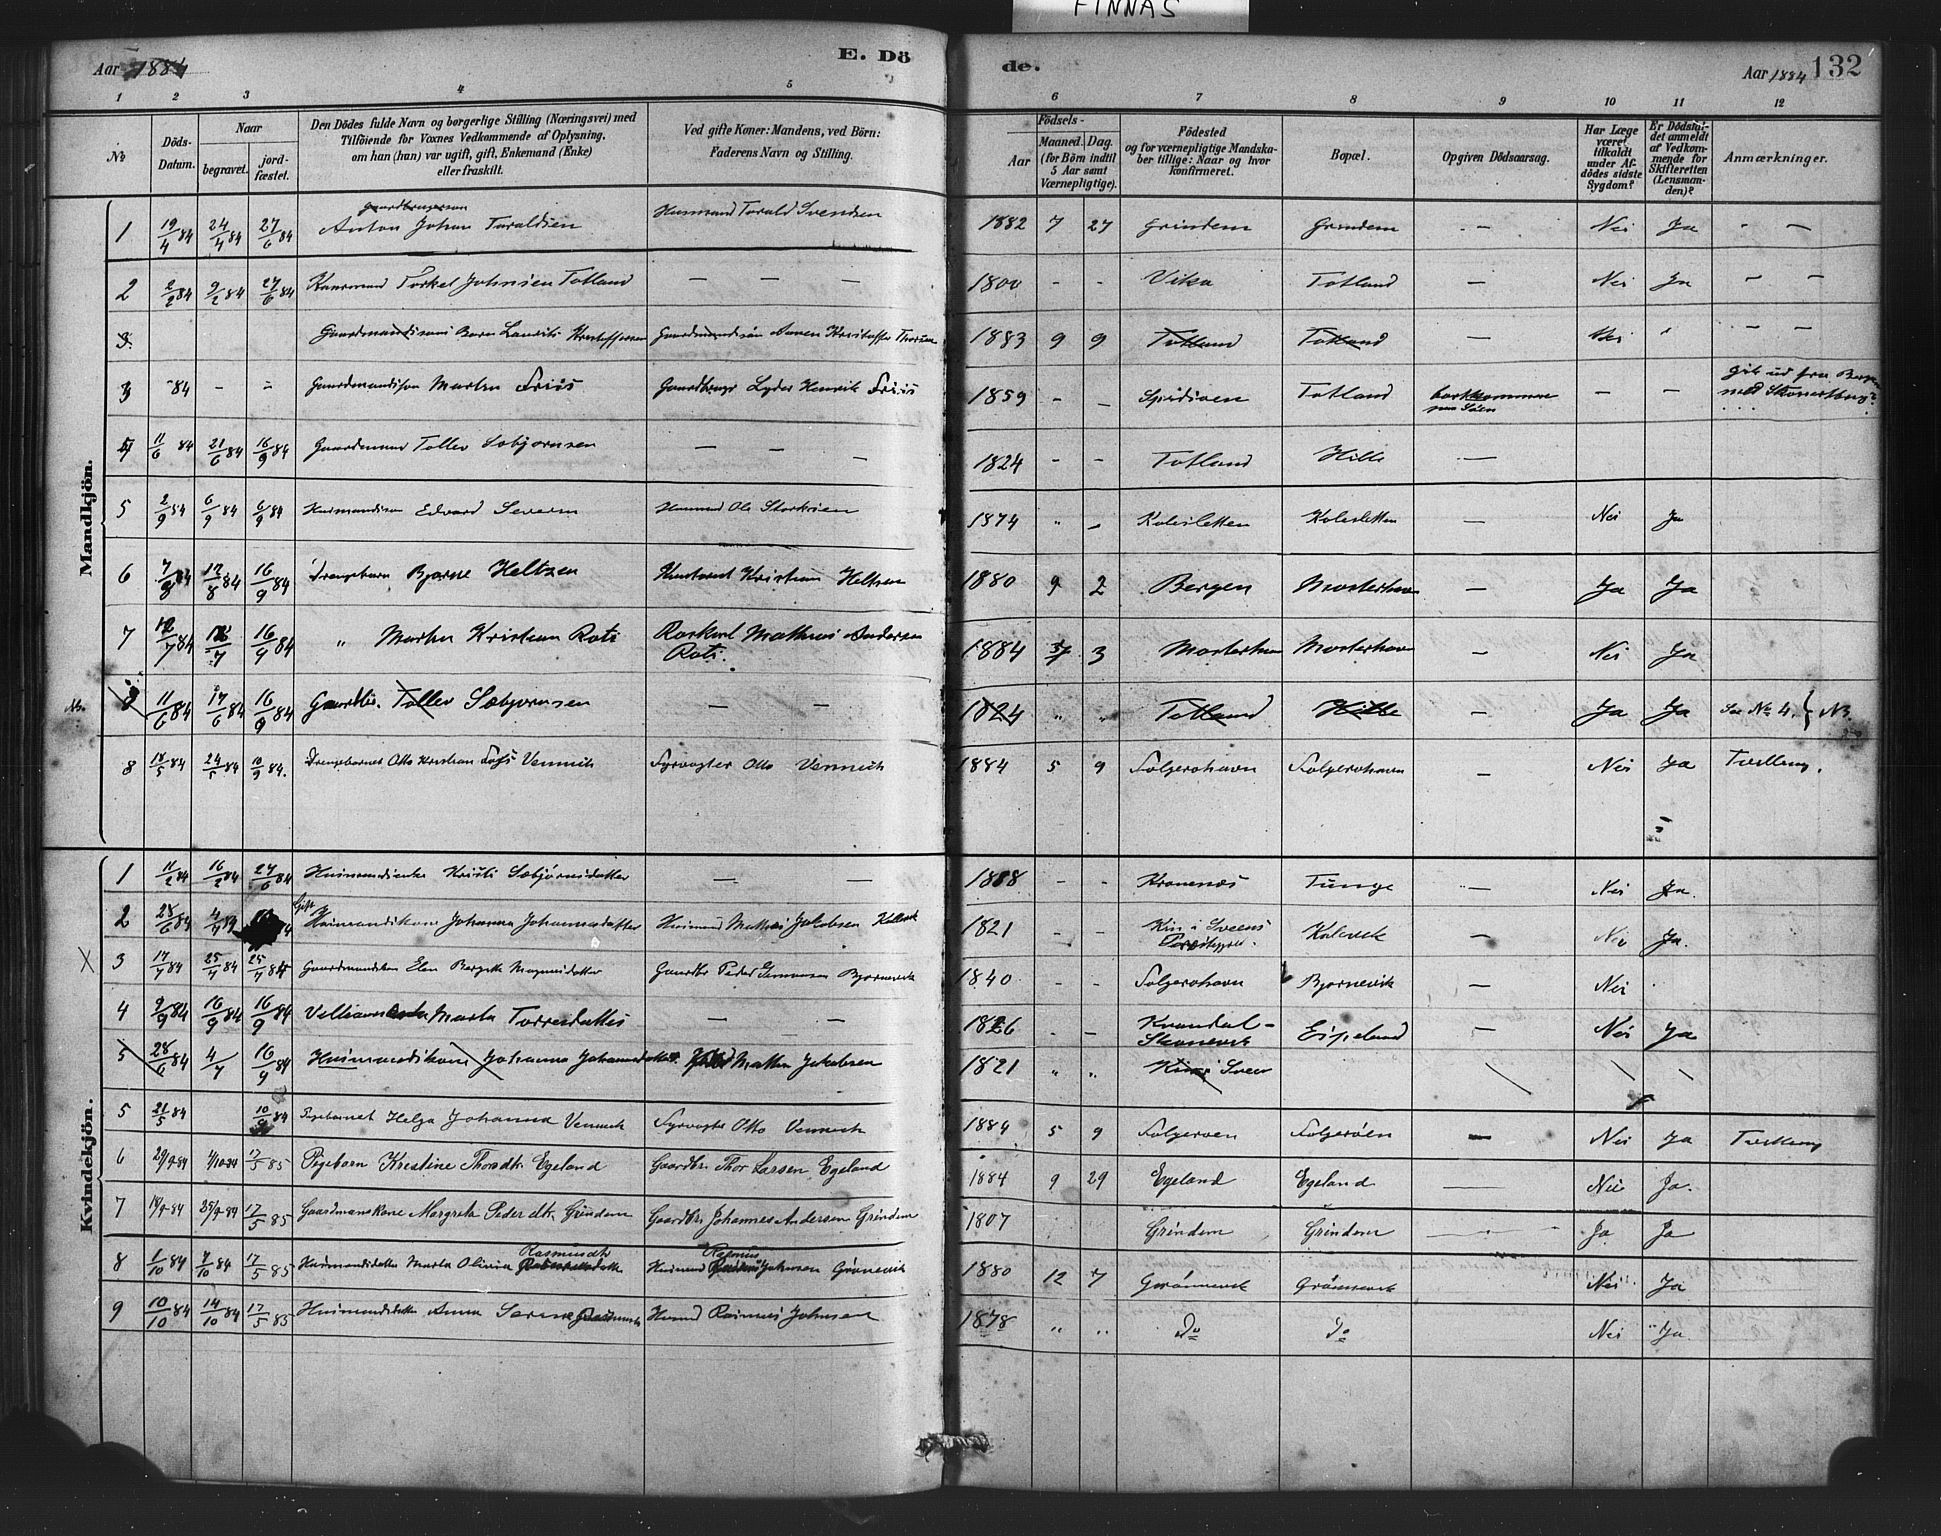 FINNÅS
Aar 1884
E. Dö
de.
Aar 1884
132
1 2 3 4 5
6 7 8 9 10 11 12
No
Döds-
Datum.
Naar
begravet.
jord-
fæstet.
Den Dödes fulde Navn og borgerlige Stilling (Næringsvei) med
Tilföiende for Voxnes Vedkommende af Oplysning,
om han (hun) var ugift, gift, Enkemand (Enke)
eller fraskilt.
Ved gifte Koner: Mandens, ved Börn:
Faderens Navn og Stilling.
Födsels-
Aar
Maaned. Dag.
(for Börn indtil
5 Aar samt
Værnepligtige).
Födested
og for værnepligtige Mandska-
ber tillige: Naar og hvor
konfirmeret.
Bopæl.
Opgiven Dödsaarsag.
Har Læge
været
tilkaldt
under Af-
dödes sidste
Sygdom?
Er Dödsfal-
det anmeldt
af Vedkom-
mende for
Skifteretten
(Lensman-
den)?
Anmærkninger.
Mandkjön.
1 19/4 84 24/4 84 27/6 84 Anton Johan Taraldsen Husmand Torald Svendsen 1882 7 27 Grindem Grindem - Nei Ja - -
2 2/2 84 9/2 84 27/6 84 Torkel Johnsen Totland - - - 1800 - - Vika Totland - Nei Ja - -
3. 1883 9 9 Totland Totland - Nei - -
3 84 - - Gaardmandssøn Martin Friis Gaardbrugr Lyder Henrik Friis 1859 - - Totland - - gik ud fra Bergen
4 11/6 84 21/6 84 16/9 84 Gaardmand Tollev Sebjørnsen - - - 1824 - - Totland Hille -
5 2/9 84 6/9 84 6/9 84 Husmandssøn Edvard Severin Husmand Ole Storksen 1874 " - Kolesletten Kolesletten - Nei Ja
6 7/8 84 12/8 84 16/9 84 Drengebarn Bjarne Heltzen Kristian Heltzen 1880 9 2 Bergen Mosterhavn - Ja Ja
7 12/7 84 16/9 84 " Martin Kristian Rots Mathias Andersen
Rots. 1884 3 Mosterhavn Mosterhavn - Nei Ja
8 11/6 84 17/6 84 16/9 84 Gaardbr. Tollev Sæbjørnsen - - 1824 " " Totland Hille - Ja Ja Se No 4. } NB.
8 18/5 84 24/5 84 10/9 84. Drengebarnet Otto Kristian Vennech Fyrvogter Otto Vennech 1884 5 9 Folgerøhavn Folgerøhavn - Nei Ja Tvilling.
Kvindekjön.
1 11/2 84 16/2 84 27/6 84 Husmandsenke Kristi Sæbjørnsdatter - - - - Tunge - Nei Ja.
2 28/6 84 4/7 84 Gift Husmandskone Johanna Johannesdatter Husmand Mathias Jakobsen 1821 - - Kalevik - Nei Ja.
3 17/7 84 25/7 84 25/7 84 Gaardmandskone Elen Bergitte Magnesdatter Gaardbr Peder Bjørnevik 1840 - - Folgerøhavn Bjørnevik - Nei
4 9/9 84 16/9 84 16/9 84 Marta Torresdatter - - 1826 - - Skonevik - Nei Ja
5 28/6 84 4/7 16/9 84 Husmandskone Johanna Johannesdatter Mathias Jakobsen 1821 " "
5 21/5 84 10/9 84 Pigebarnet Helga Johanna Vennech Fyrvogter Otto Vennech 1884 5 9 Folgerøen Folgerøen - Nei Ja Tvilling
6 29/9 84 4/10 84 17/5 85 Pigebarn Kristine Thorsdtr Egeland Gaardbr. Thor Larsen Egeland 1884 9 29 Egeland Egeland - Nei Ja.
7 18/9 84 25/9 84 17/5 85 Gaardmanskone Margreta Pedersdtr. Grindem Gaardbr. Johannes Andersen Grindem 1807 Grindem Grindem - Ja Ja
8 1/10 84 7/10 84 17/5 85 Husmandsdatter Marta Olivia Rasmusdtr Husmand Rasmus Johnsen Grønevik 1880 12 7 Grønnevik Grønnevik Nei Ja
9 10/10 84 14/10 84 17/5 85 Husmandsdatter Anna Husmd Rasmus Johnsen 1878 " " Do Do Nei Ja